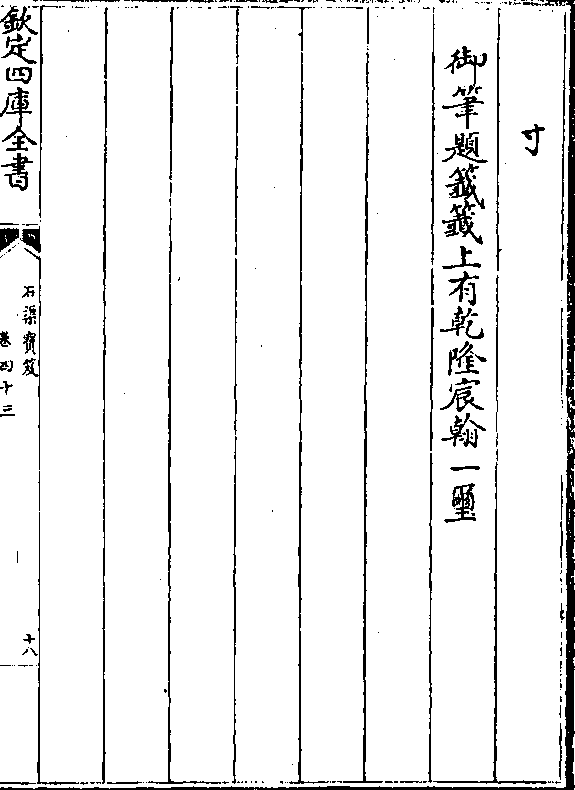 寸
御筆題籤籤上有乾隆宸翰一璽
欽定四庫全書
石渠寳笈
卷四十三
十八